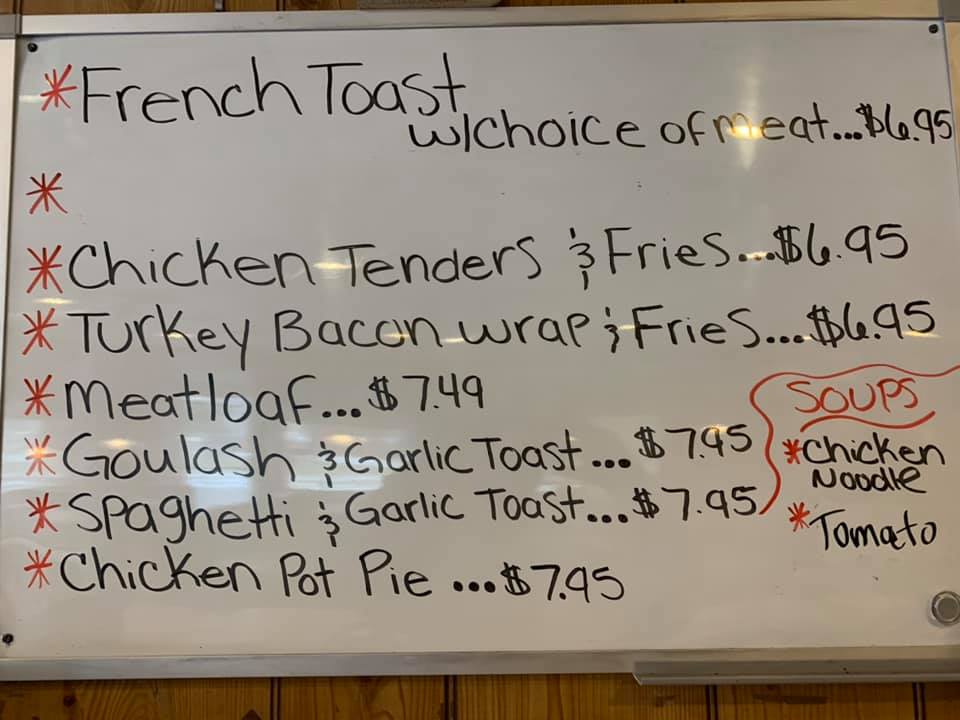 *French Toast
w/choice of meat...$6.95
*
*Chicken Tenders & Fries...$6.95
*Turkey Bacon wrap & Fries...$6.95
*Meatloaf...$7.49
*Goulash & Garlic Toast...$7.95
*Spaghetti & Garlic Toast...$7.95
*Chicken Pot Pie...$7.95
SOUPS
*Chicken
Noodle
*Tomato